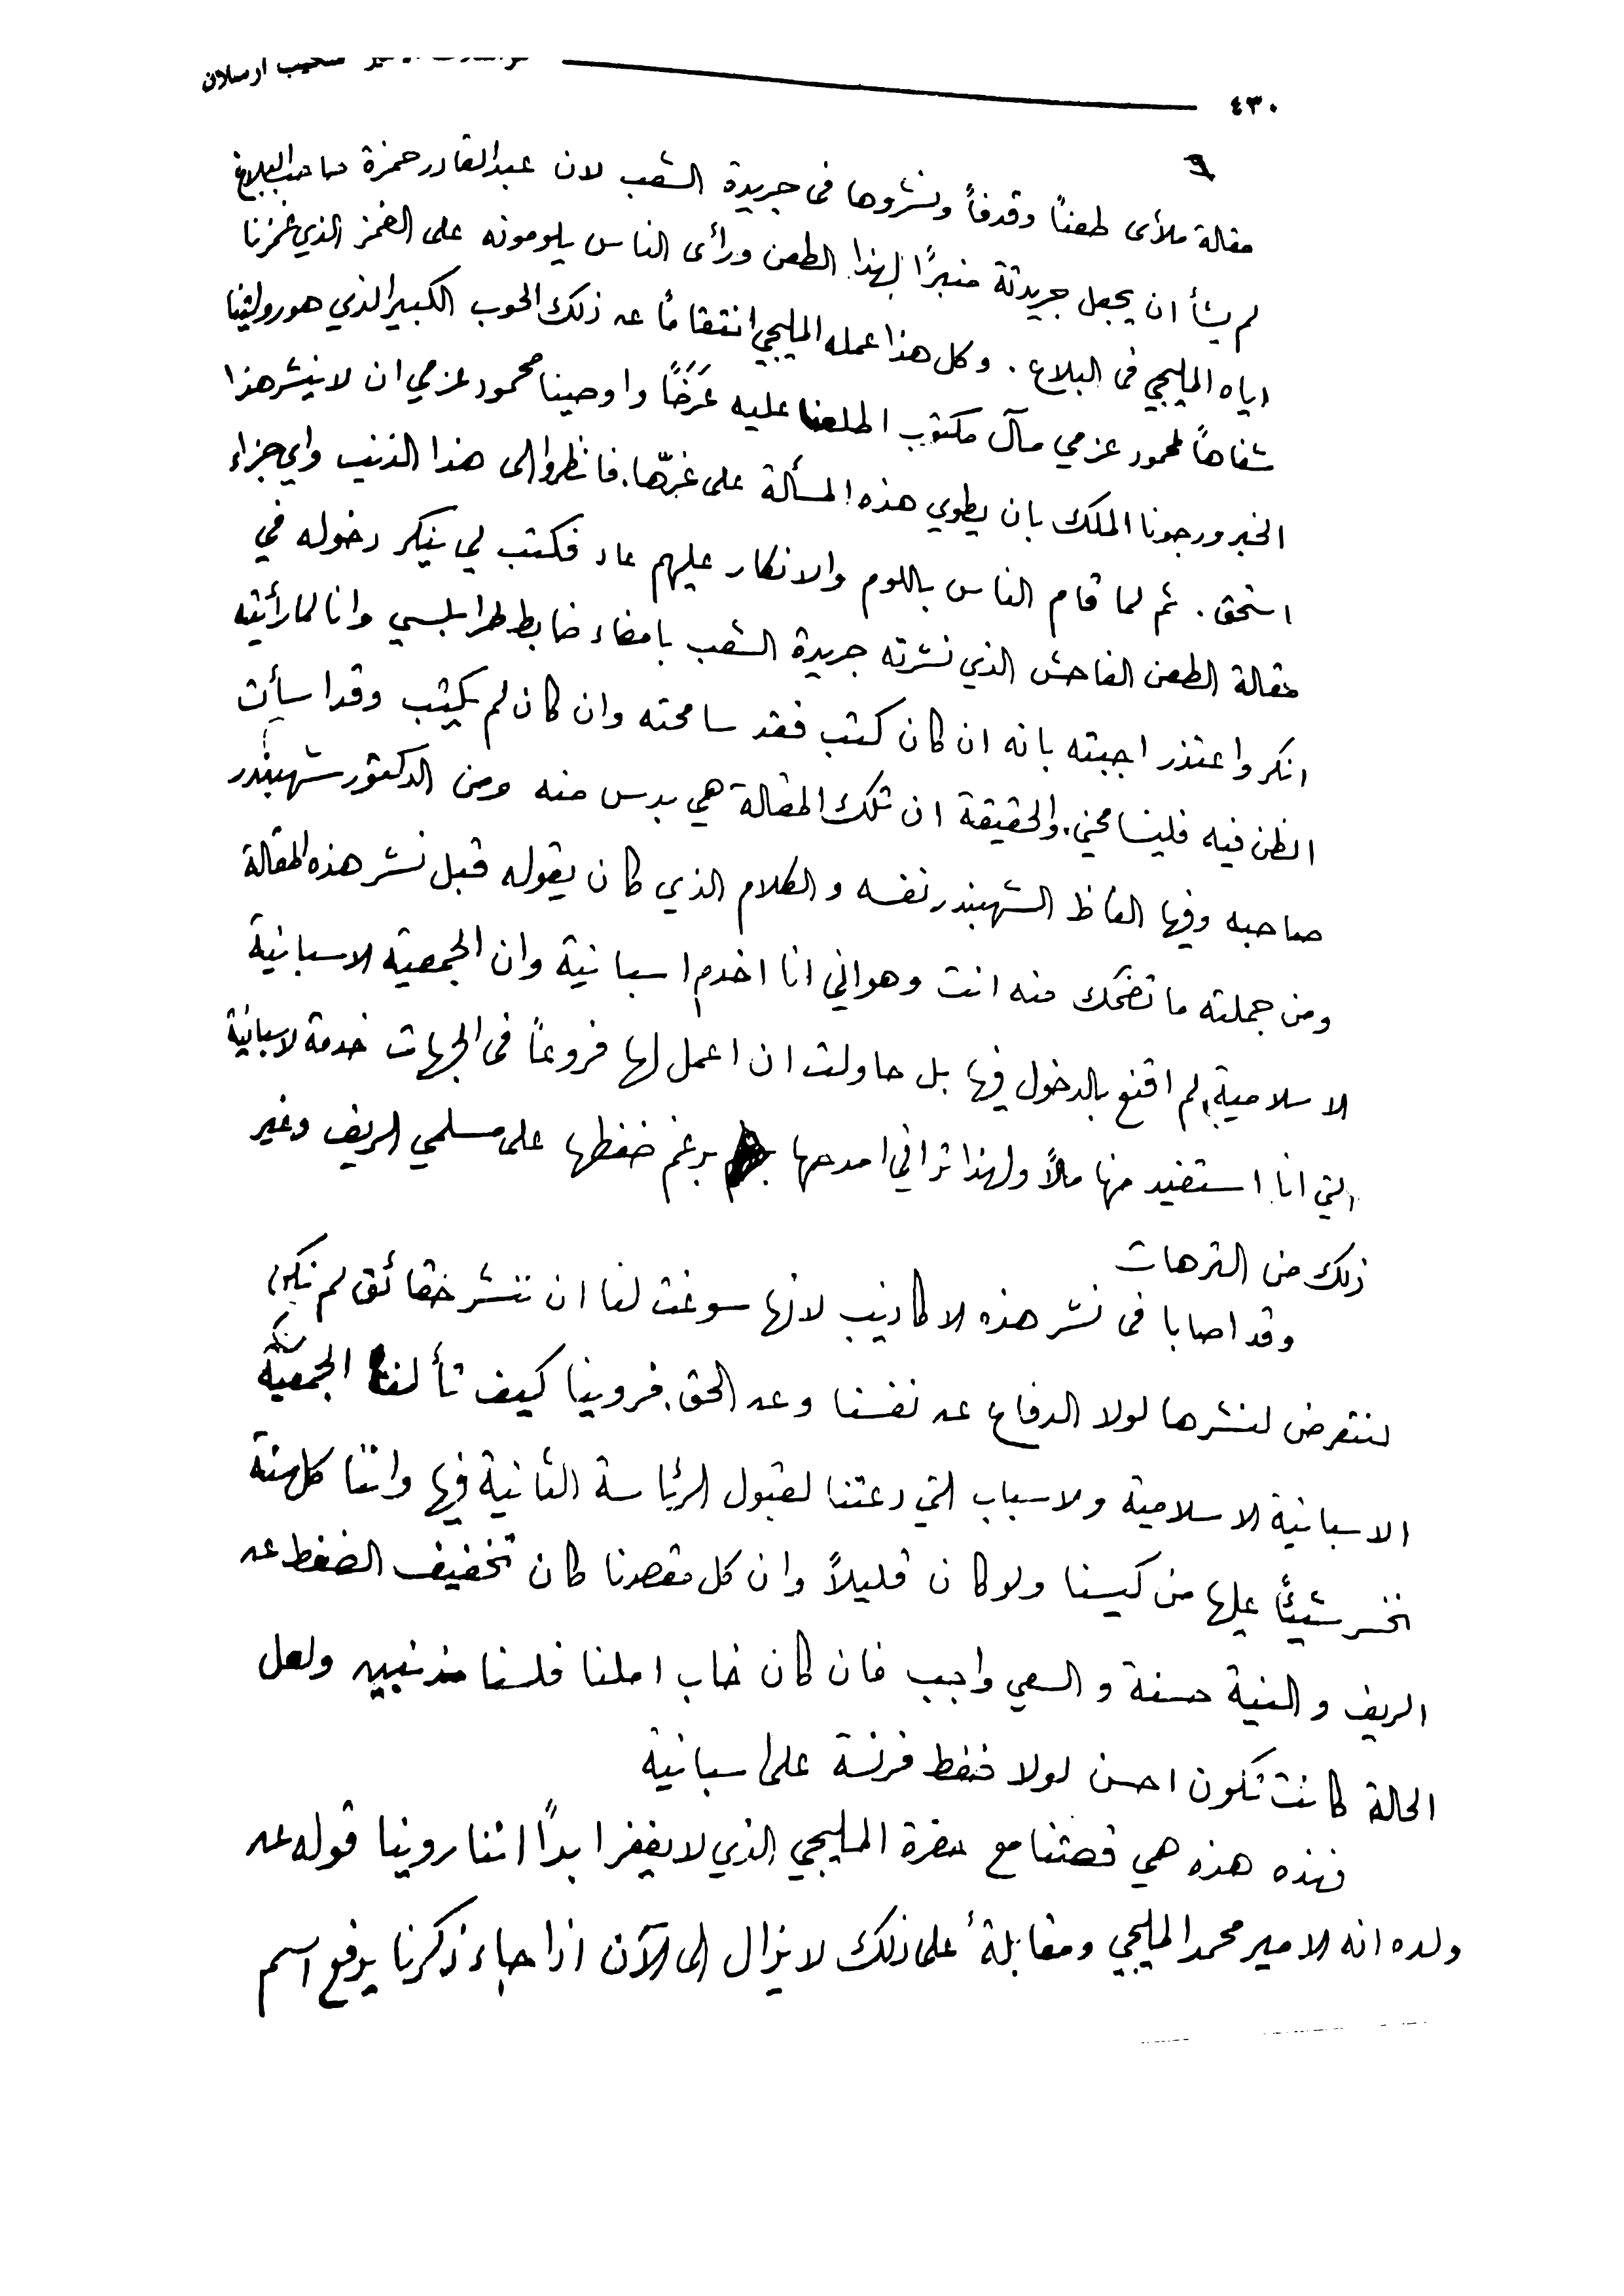 ٤٣٠ شكيب ارسلان
٩
مقالة ملأى طعناً وقدفاً ونشروها فى جريدة الشعب لان عبدالقادر حمزة صاحب البلاغ
لم يشأ ان يجعل جريدته منبرًا لهذا الطعن ورأى الناس يلومونه على الغمز الذي غمزنا
اياه المليجي فى البلاغ . وكل هذا عمله المليجي انتقامًا عن ذلك الحوب الكبير الذي هو روايتنا
شفاهاً لمحمود عزمي مآل مكتوب اطلعنا عليه عَرَضًا واوصينا محمود عزمي ان لا ينشر هذا
الخبر ورجونا الملك بان يطوي هذه المسألة على غرّها. فانظروا الى هذا الذنب واي جزاء
استحق . ثم لما قام الناس باللوم والانكار عليهم عاد فكتب لي ينكر دخوله في
مقالة الطعن الفاحش الذي نشرته جريدة الشعب بامضاء ضابط طرابلسي وانا لما رأيته
انكر واعتذر اجبته بانه ان كان كتب فقد سامحته وان كان لم يكتب وقد اسأت
الظن فيه فليسامحني. والحقيقة ان تلك المقالة هي بدس منه ومن الدكتور شهبندر
صاحبه وفيها الفاظ الشهبندر نفسه والكلام الذي كان يقوله قبل نشر هذه المقالة
ومن جملته ما تضحك منه انت وهو اني انا اخدم اسبانية وان الجمعية الاسبانية
الاسلامية لم اقنع بالدخول فيها بل حاولت ان اعمل لها فروعاً فى الجهات خدمة لاسبانية
التي انا استفيد منها مالاً ولهذا تراني امدحها برغم ضغطها على مسلمي الريف وغير
ذلك من الترهات
وقد اصابا فى نشر هذه الاكاذيب لانها سوغت لنا ان ننشر حقائق لم نكن
لنتعرض لنشرها لولا الدفاع عن نفسنا وعن الحق. فروينا كيف تألفت الجمعية
الاسبانية الاسلامية والاسباب التي دعتنا لقبول الرئاسة الثانية فيها واننا كل سنة
نخسر شيئاً عليها من كيسنا ولو كان قليلاً وان كل مقصدنا كان تخفيف الضغط عن
الريف والنية حسنة والسعي واجب فان كان خاب املنا فلسنا مذنبين ولعل
الحالة كانت تكون احسن لولا ضغط فرنسة على اسبانية
فهذه هذه هي قصتنا مع حضرة المليجي الذي لا يغفر ابداً اننا روينا قوله عن
ولده انه الامير محمد المليجي ومقابلةً على ذلك لا يزال الى الآن اذا جاء ذكرنا يرفع اسم